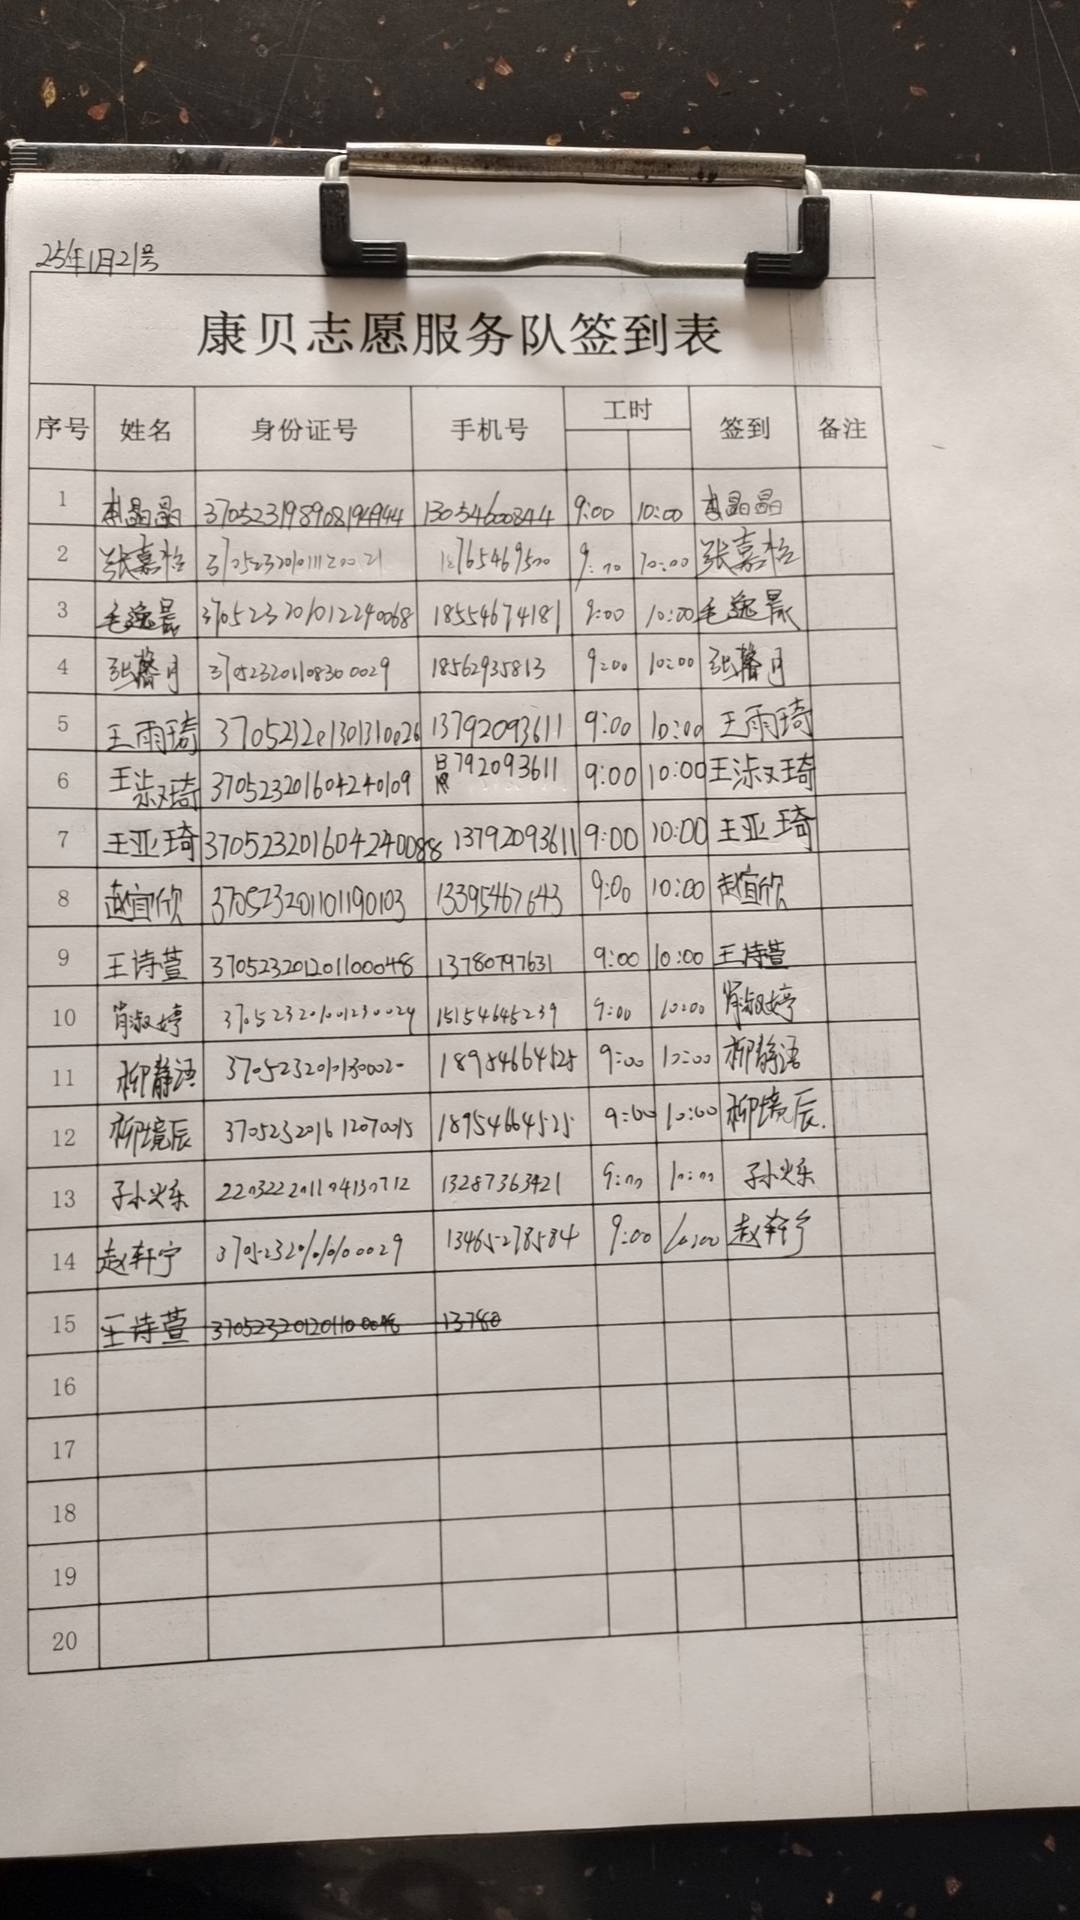 25年1月21号
康贝志愿服务队签到表
序号 姓名 身份证号 手机号 工时 签到 备注
1 李晶晶 370523198908194944 13054600844 9:00 10:00 李晶晶
2 张嘉 9:00 10:00 张嘉
3 毛逸晨 370523201012240068 18554674181 9:00 10:00 毛逸晨
4 张馨月 370523201108300029 18562935813 9:00 10:00 张馨月
5 王雨琦 370523201301310026 13792093611 9:00 10:00 王雨琦
6 王淑琦 370523201604240109 792093611 9:00 10:00 王淑琦
7 王亚琦 370523201604240088 13792093611 9:00 10:00 王亚琦
8 赵宜欣 370523201101190103 13395467643 9:00 10:00 赵宜欣
9 王诗萱 370523201201100048 13780797631 9:00 10:00 王诗萱
10 肖淑婷 370523201001230024 15154645239 9:00 10:00 肖淑婷
11 柳静语 18954664525 9:00 10:00 柳静语
12 柳境辰 370523201612070015 18954664525 9:00 10:00 柳境辰.
13 孙烁 220322201104130712 13287363421 9:00 10:00 孙烁
14 赵轩宁 13465278584 9:00 10:00 赵轩宁
15 王诗萱 370523201201100048 13780
16
17
18
19
20